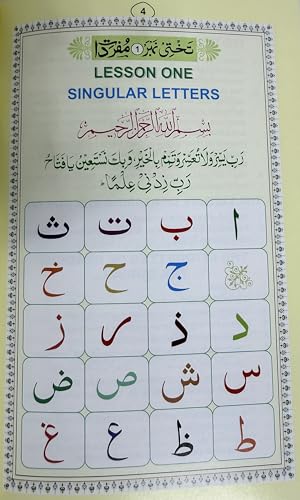 4
تختی نمبر ① مفردات
LESSON ONE
SINGULAR LETTERS
بسم الله الرحمن الرحيم
رَبِّ يَسِّرْ وَلَا تُعَسِّرْ وَتَمِّمْ بِالْخَيْرِ وَبِكَ نَسْتَعِيْنُ يَا فَتَّاحُ
رَبِّ زِدْنِيْ عِلْمًا
ا ب ت ث
ج ح خ
د ذ ر ز
س ش ص ض
ط ظ ع غ